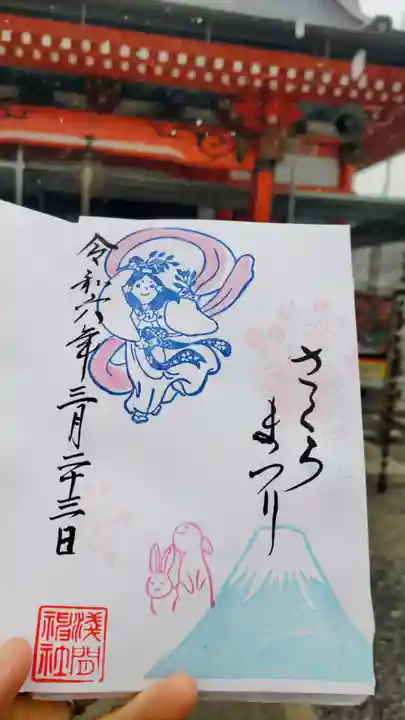 さくらまつり
令和六年三月二十三日
淺間神社